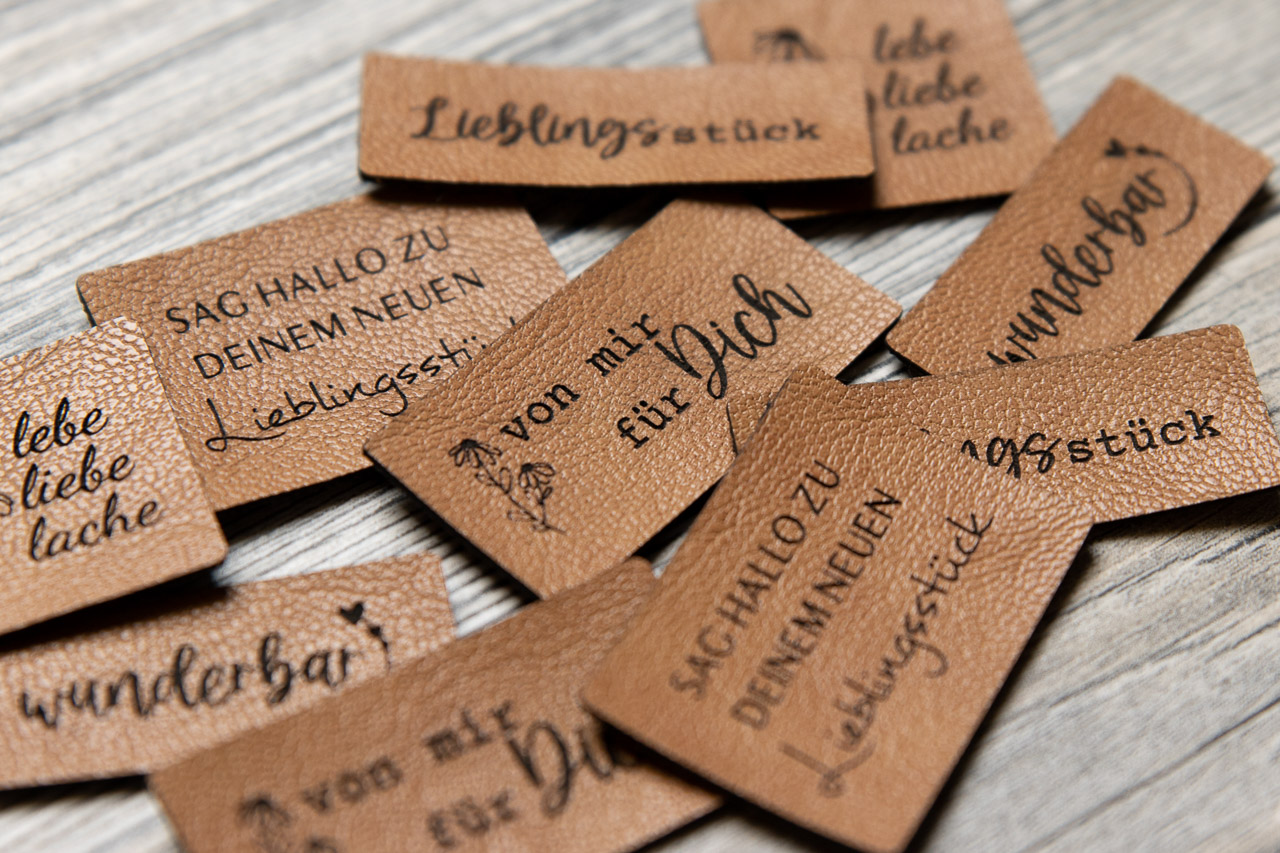 lebe
liebe
lache
Lieblingsstück
wunderbar
SAG HALLO ZU
DEINEM NEUEN
Lieblingsstü
von mir
für Dich
ngsstück
lebe
liebe
lache
SAG HALLO ZU
DEINEM NEUEN
Lieblingsstück
wunderbar
von mir
für Di